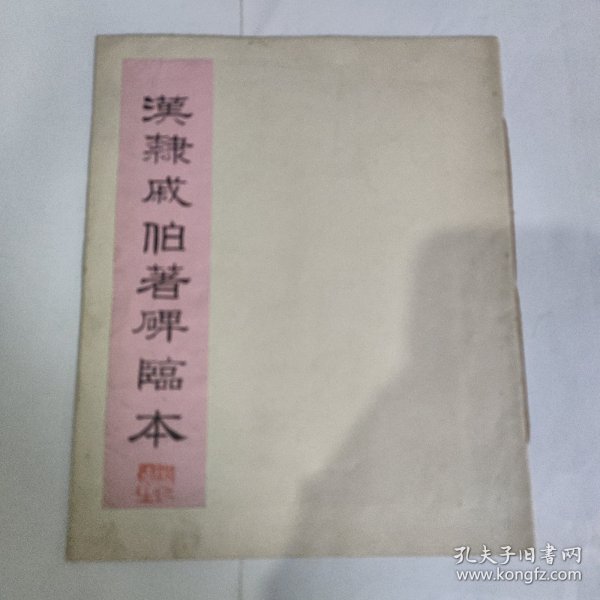 漢隸戚伯著碑臨本
孔夫子旧书网
www.kongfz.com